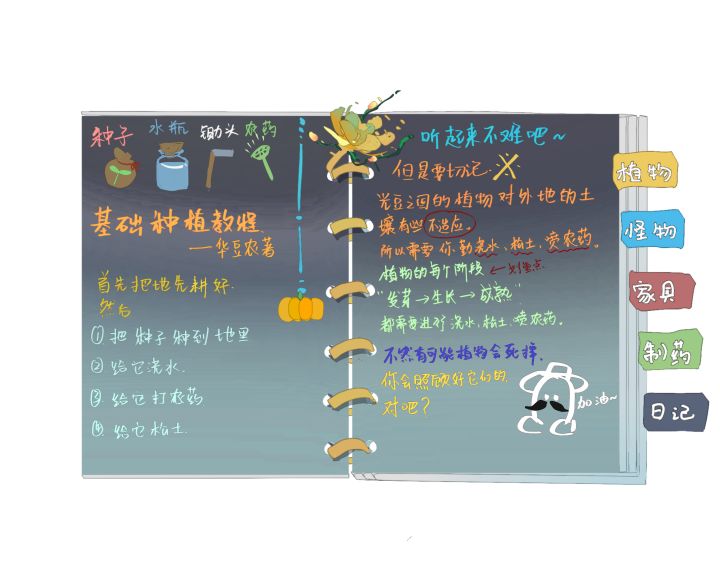 种子 水瓶 锄头 农药
基础种植教程
——华豆农著
首先把地先耕好.
然后
① 把种子种到地里
② 给它浇水.
③ 给它打农药
④ 给它松土.
听起来不难吧~
但是要切记.
豆之国的植物对外地的土
壤有些不适应。
所以需要你勤浇水、松土、喷农药。
植物的每个阶段 ←划重点
"发芽→生长→成熟"
都需要进行浇水、松土、喷农药。
不然有可能植物会死掉.
你会照顾好它们的.
对吧？
加油~
植物
怪物
家具
制药
日记